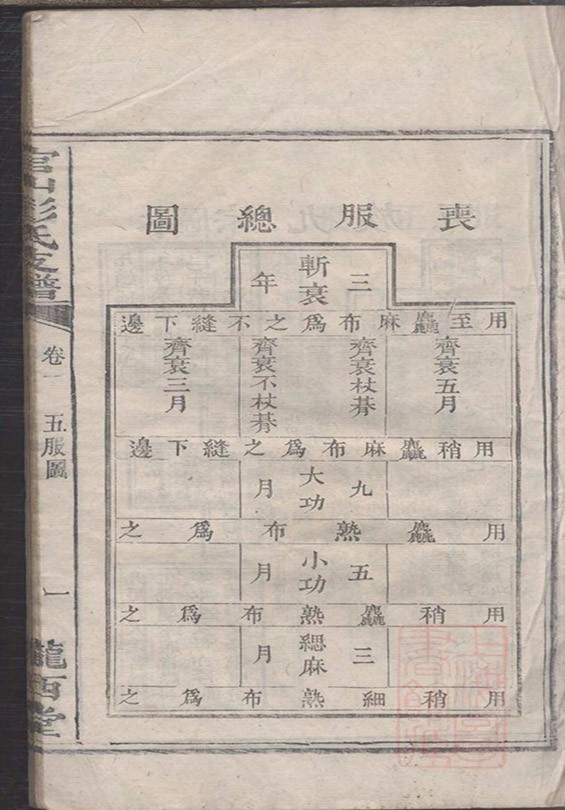 喪服總圖
斬衰
三年
用至麤麻布爲之不縫下邊
齊衰五月
齊衰杖朞
齊衰不杖朞
齊衰三月
用稍麤麻布爲之縫下邊
大功
九月
用麤熟布爲之
小功
五月
用稍麤熟布爲之
緦麻
三月
用稍細熟布爲之
官山彭氏支譜
卷一
五服圖
一